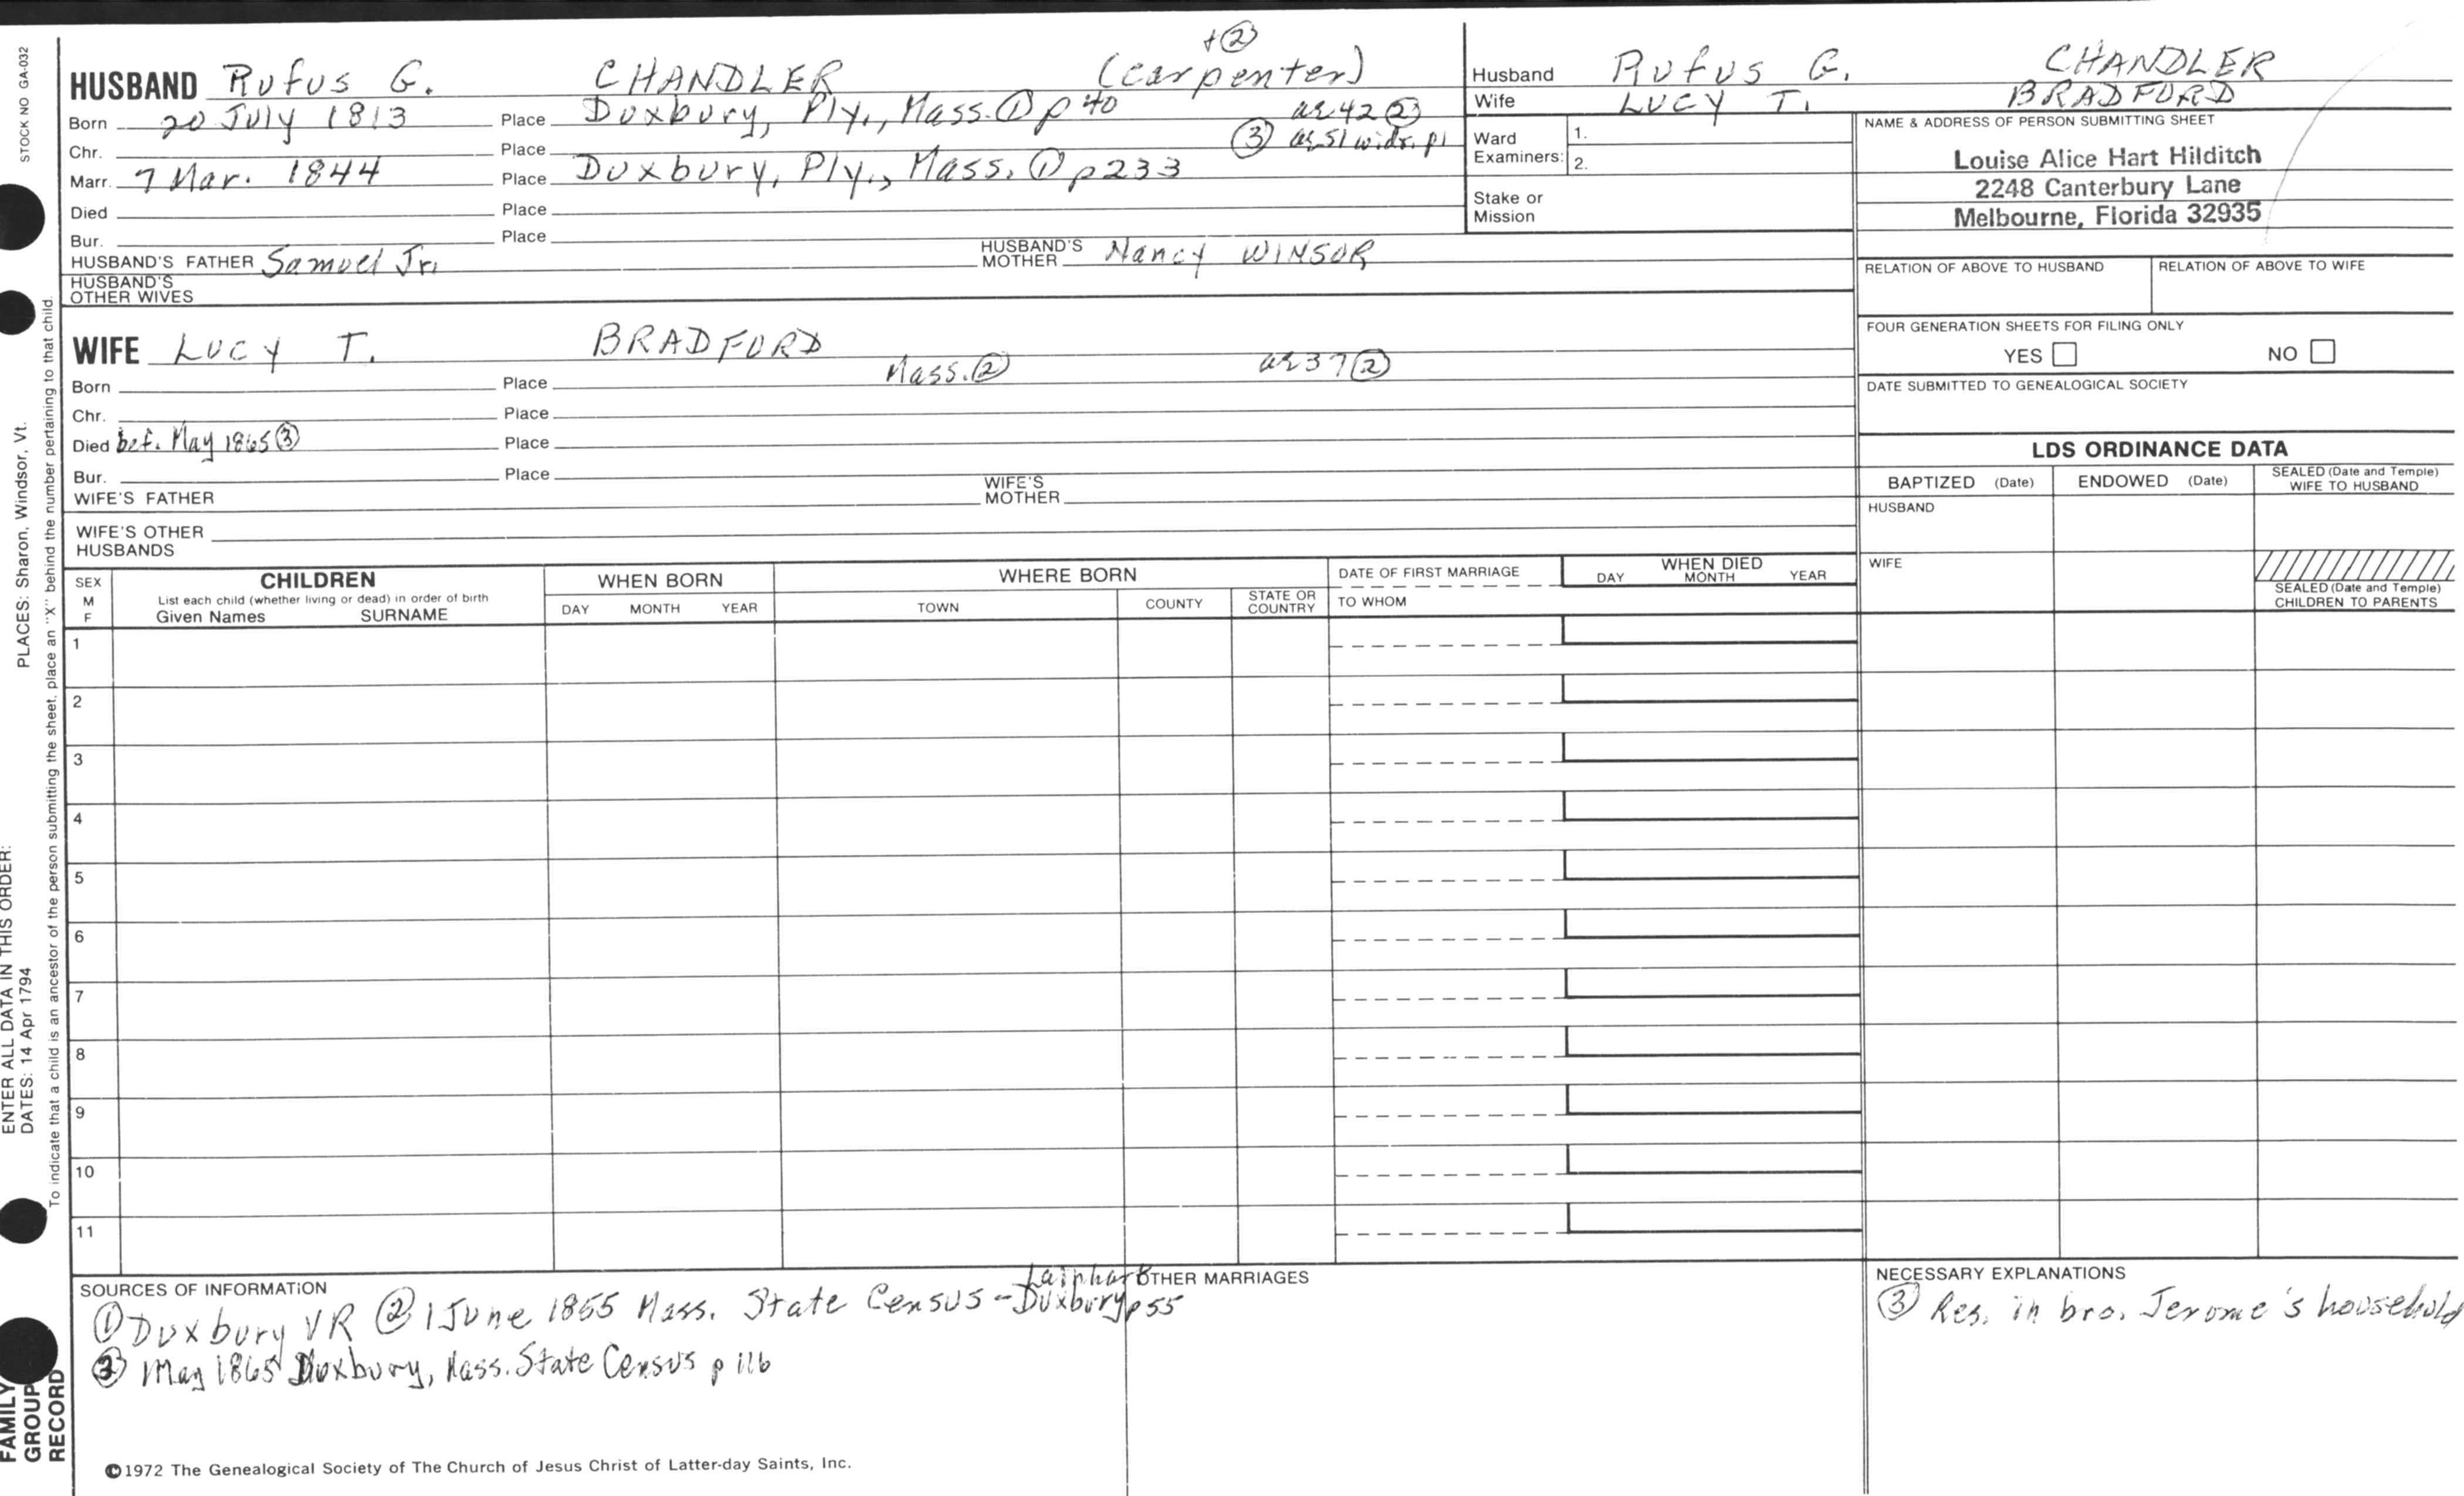 STOCK NO GA-032
PLACES: Sharon, Windsor, Vt.
ENTER ALL DATA IN THIS ORDER:
DATES: 14 Apr 1794
To indicate that a child is an ancestor of the person submitting the sheet, place an "X" behind the number pertaining to that child.
FAMILY
GROUP
RECORD
+②
HUSBAND Rufus G. CHANDLER (carpenter)
Born 20 July 1813 Place Duxbury, Ply., Mass. ① p 40 ae 42 ②
Chr. Place ③ ae 51 widr. p1
Marr. 7 Mar. 1844 Place Duxbury, Ply., Mass. ① p233
Died Place
Bur. Place
HUSBAND'S FATHER Samuel Jr. HUSBAND'S MOTHER Nancy WINSOR
HUSBAND'S
OTHER WIVES
WIFE Lucy T. BRADFORD
Mass. ② ae 37 ②
Born Place
Chr. Place
Died bef. May 1865 ③ Place
Bur. Place
WIFE'S FATHER WIFE'S MOTHER
WIFE'S OTHER
HUSBANDS
Husband Rufus G. CHANDLER
Wife LUCY T. BRADFORD
Ward
Examiners:
1.
2.
Stake or
Mission
NAME & ADDRESS OF PERSON SUBMITTING SHEET
Louise Alice Hart Hilditch
2248 Canterbury Lane
Melbourne, Florida 32935
RELATION OF ABOVE TO HUSBAND RELATION OF ABOVE TO WIFE
FOUR GENERATION SHEETS FOR FILING ONLY
YES NO
DATE SUBMITTED TO GENEALOGICAL SOCIETY
LDS ORDINANCE DATA
BAPTIZED (Date) ENDOWED (Date) SEALED (Date and Temple)
WIFE TO HUSBAND
HUSBAND
WIFE
SEALED (Date and Temple)
CHILDREN TO PARENTS
SEX
M
F
CHILDREN
List each child (whether living or dead) in order of birth
Given Names SURNAME
WHEN BORN
DAY MONTH YEAR
WHERE BORN
TOWN COUNTY STATE OR
COUNTRY
DATE OF FIRST MARRIAGE
TO WHOM
WHEN DIED
DAY MONTH YEAR
1
2
3
4
5
6
7
8
9
10
11
SOURCES OF INFORMATION
① Duxbury VR ② 1 June 1855 Mass. State Census - Duxbury p 55
③ 1 May 1865 Duxbury, Mass. State Census p 116
OTHER MARRIAGES
NECESSARY EXPLANATIONS
③ Res. in bro. Jerome's household
©1972 The Genealogical Society of The Church of Jesus Christ of Latter-day Saints, Inc.